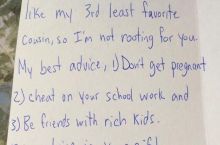 like my 3rd least favorite
cousin, so I'm not rooting for you.
My best advice, 1) Don't get pregnant
2) cheat on your school work and
3) Be friends with rich kids.